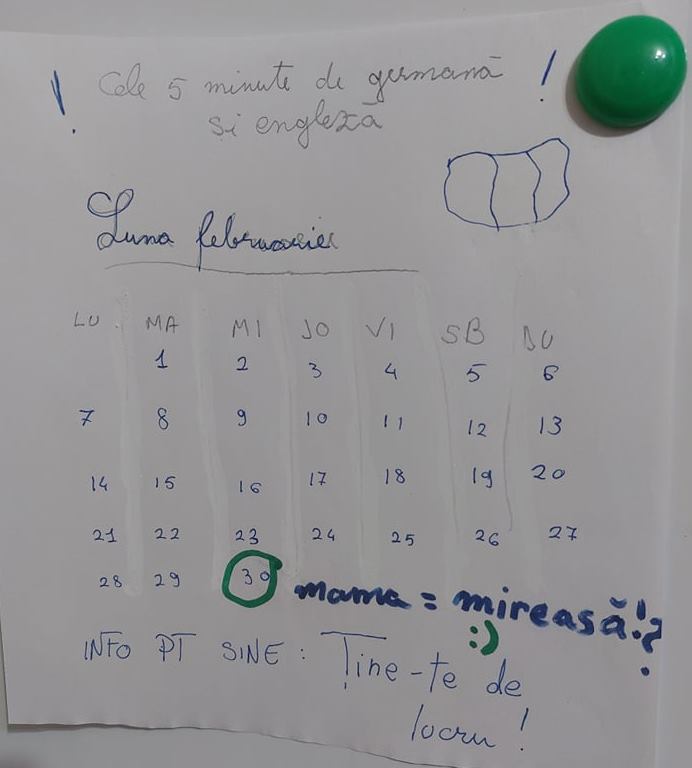 ! Cele 5 minute de germană !
si engleză
Luna februarie
LU MA MI JO VI SB DU
1 2 3 4 5 6
7 8 9 10 11 12 13
14 15 16 17 18 19 20
21 22 23 24 25 26 27
28 29 30 mama = mireasă!?
:)
INFO PT SINE : Ține-te de
lucru !